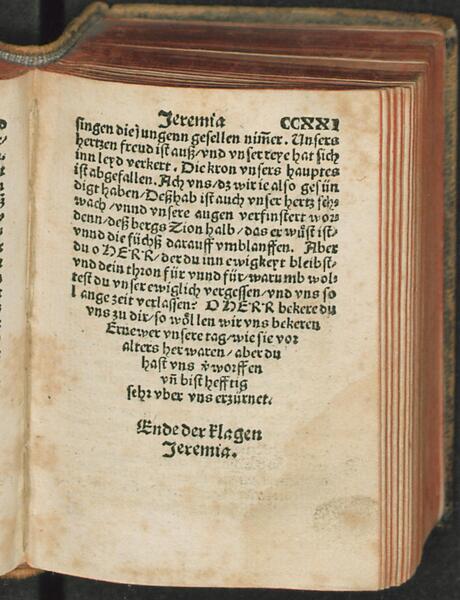 Jeremia CCXXI
singen die jungenn gesellen nim̃er. Unsers
hertzen freud ist auß/vnd vnser reye hat sich
inn leyd verkert. Die kron vnsers hauptes
ist abgefallen. Ach vns/dz wir ie also gesün
digt haben/Deßhab ist auch vnser hertz sch
wach/vnnd vnsere augen verfinstert wor
denn/deß bergs Zion halb/das er wüst ist/
vnnd die füchß darauff vmblauffen. Aber
du o HERR/der du inn ewigkeyt bleibst/
vnd dein thron für vnnd für/warumb wol
test du vnser ewiglich vergessen/vnd vns so
lange zeit verlassen? O HERR bekere du
vns zu dir/so wöllen wir vns bekeren
Ernewer vnsere tag/wie sie vor
alters her waren/aber du
hast vns v̉worffen
vn̄ bist hefftig
sehr vber vns erzürnet.
Ende der klagen
Jeremia.